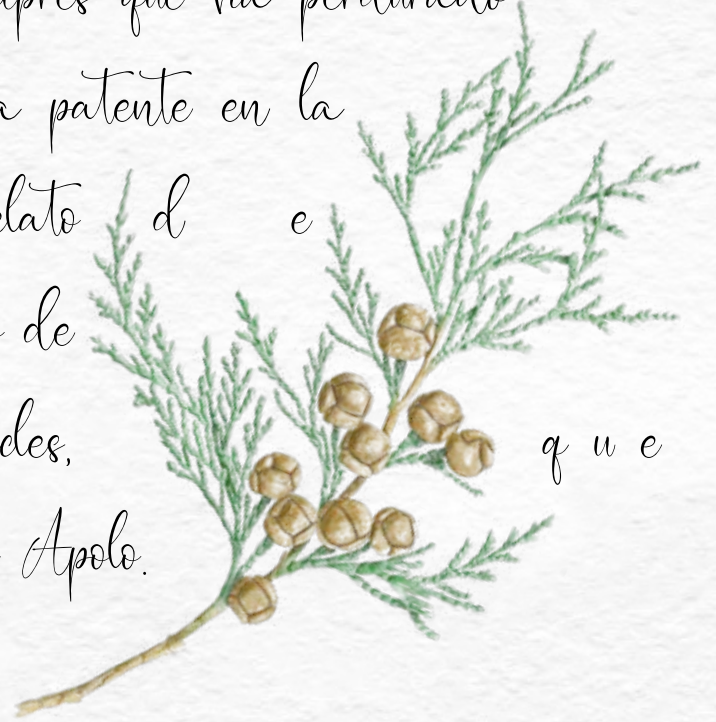 que
a patente en la
elato d e
de
des, que
Apolo.